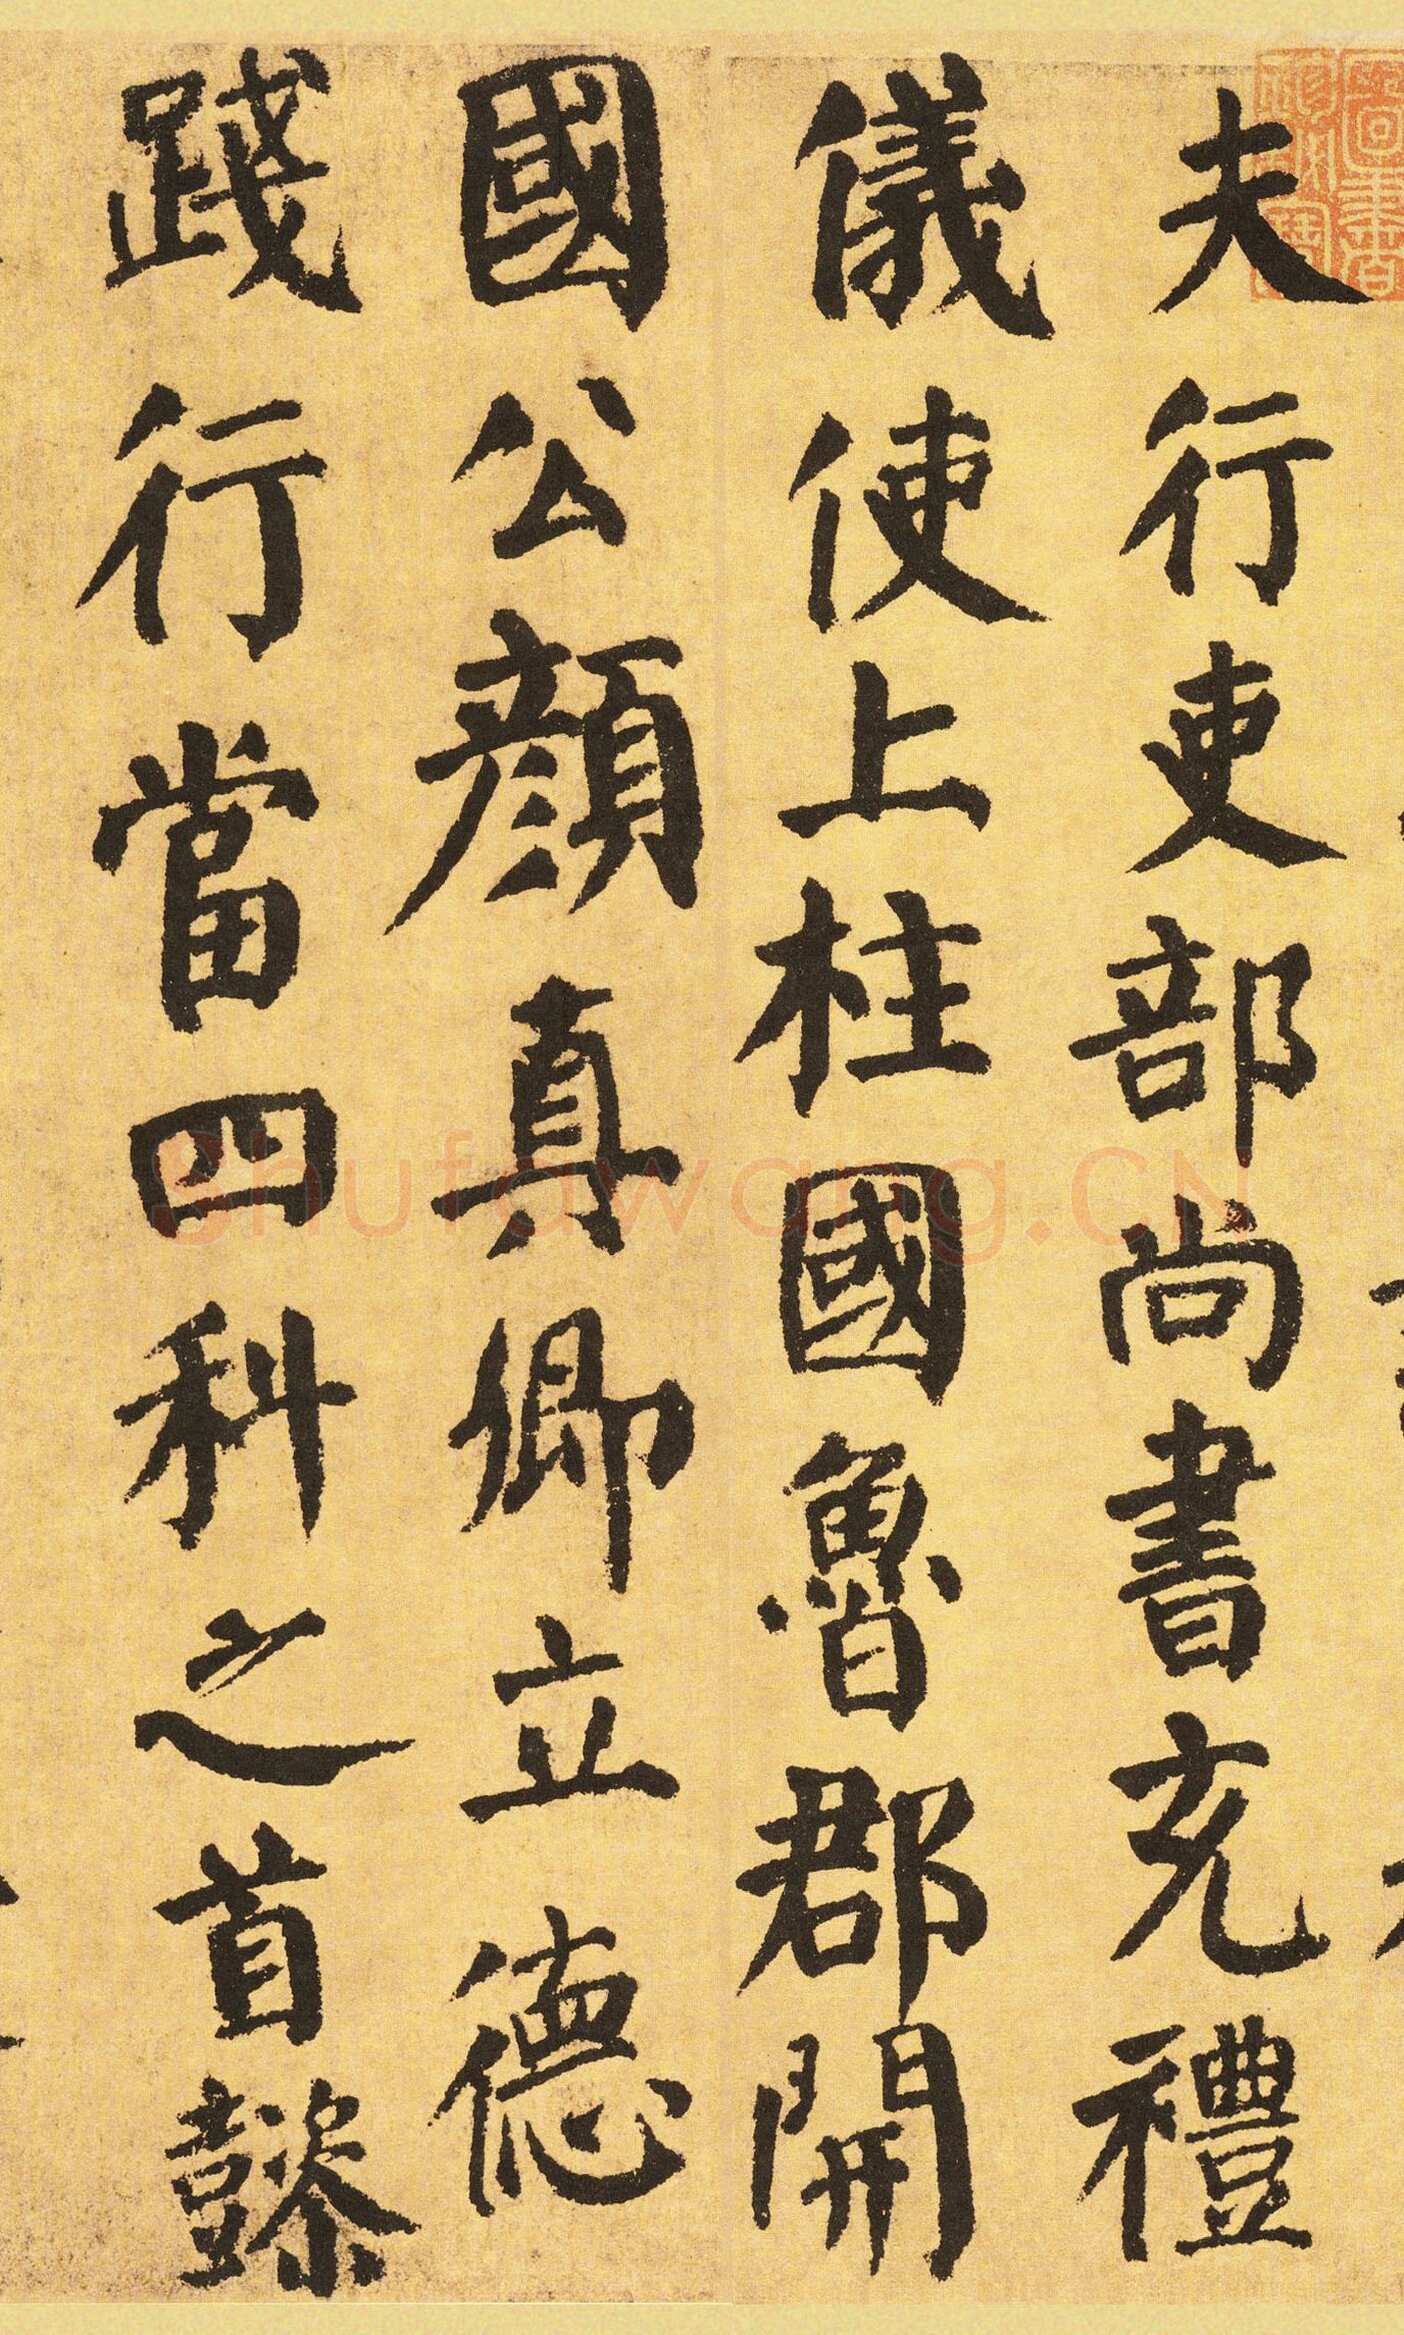 夫行吏部尚書充禮
儀使上柱國魯郡開
國公顏真卿立德
踐行當四科之首懿
Shufawang.CN